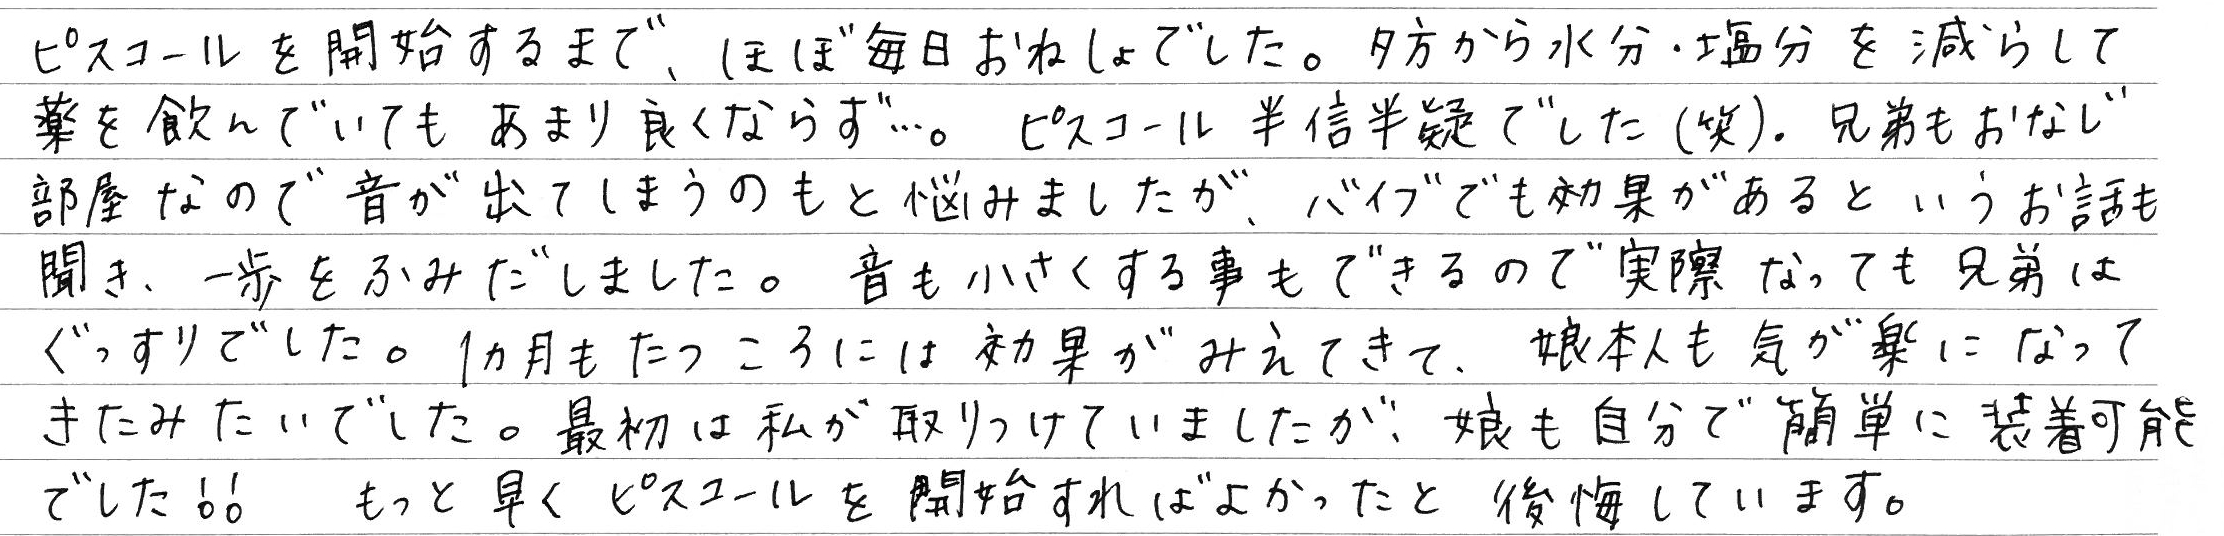 ピスコールを開始するまで、ほぼ毎日おねしょでした。夕方から水分・塩分を減らして
薬を飲んでいてもあまり良くならず…。 ピスコール半信半疑でした(笑)。兄弟もおなじ
部屋なので音が出てしまうのもと悩みましたが、バイブでも効果があるというお話も
聞き、一歩をふみだしました。 音も小さくする事もできるので実際なっても兄弟は
ぐっすりでした。1カ月もたつころには効果がみえてきて、娘本人も気が楽になって
きたみたいでした。最初は私が取りつけていましたが、娘も自分で簡単に装着可能
でした!! もっと早くピスコールを開始すればよかったと後悔しています。